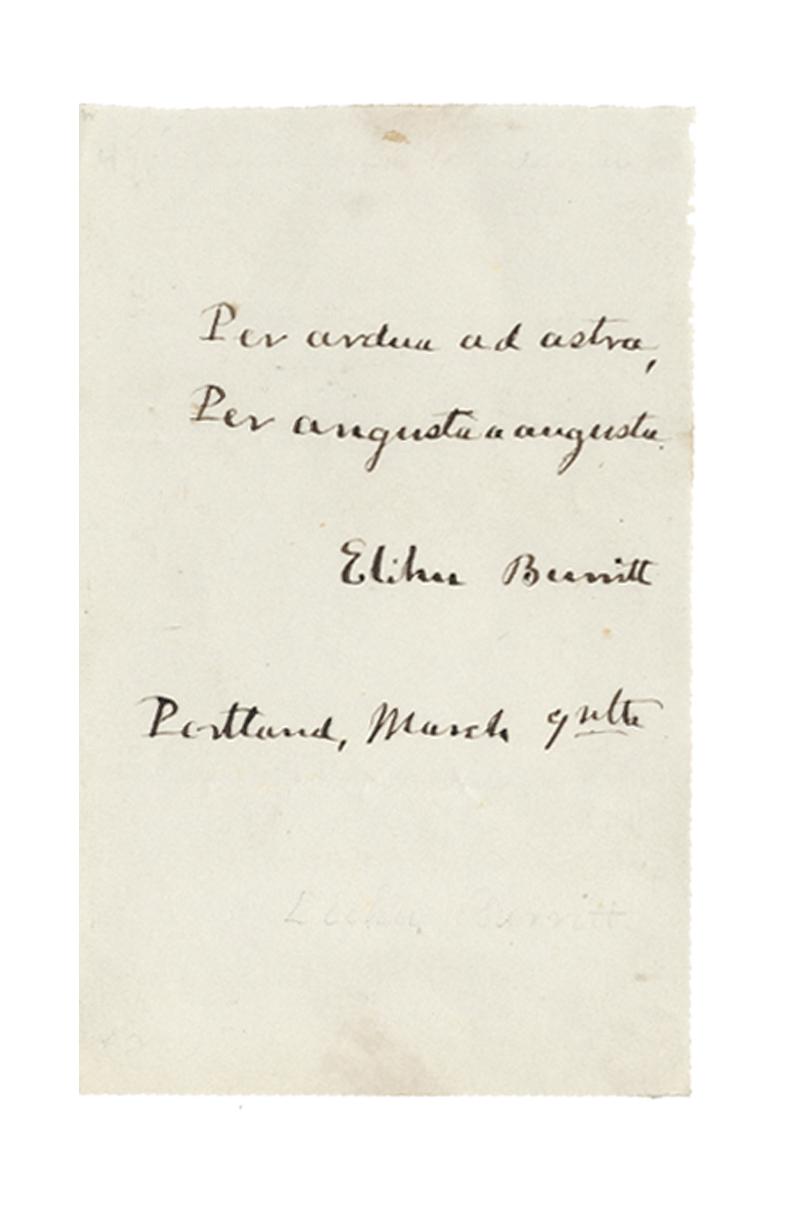 Per ardua ad astra,
Per angusta a augusta.
Elihu Burritt
Portland, March
Elihu Burritt